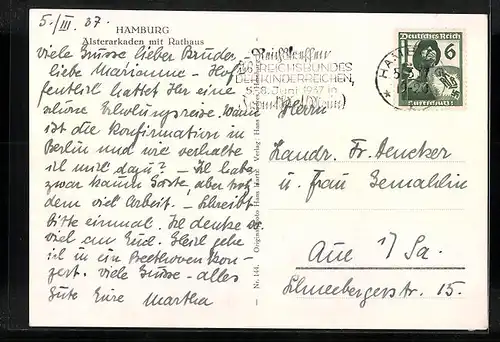 5./III. 37.
HAMBURG
Alsterarkaden mit Rathaus
Viele Grüsse lieber Bruder
liebe Marianne - Hof-
fentlich hattet Ihr eine
schöne Erholungsreise. Wann
ist die Konfirmation in
Berlin und wie verhalte
ich mich dazu? - Ich habe
zwar kaum Gäste, aber trotz
dem viel Arbeit. - Schreibt
bitte einmal. Ich denke so
viel an Euch. Gleich gehe
ich in ein Beethoven Kon-
zert. Viele Grüsse - alles
Gute Eure Martha
Nr. 144. Originalphoto Hans Hartz Verlag, Hans
Reichstreffen
DES REICHSBUNDES
DER KINDERREICHEN
5.-8. Juni 1937 in
Deutsches Reich
6
Luftschutz
Herrn
Landr. Fr.
u. Frau Gemahlin
Aue i/Sa.
Schneebergerstr. 15.